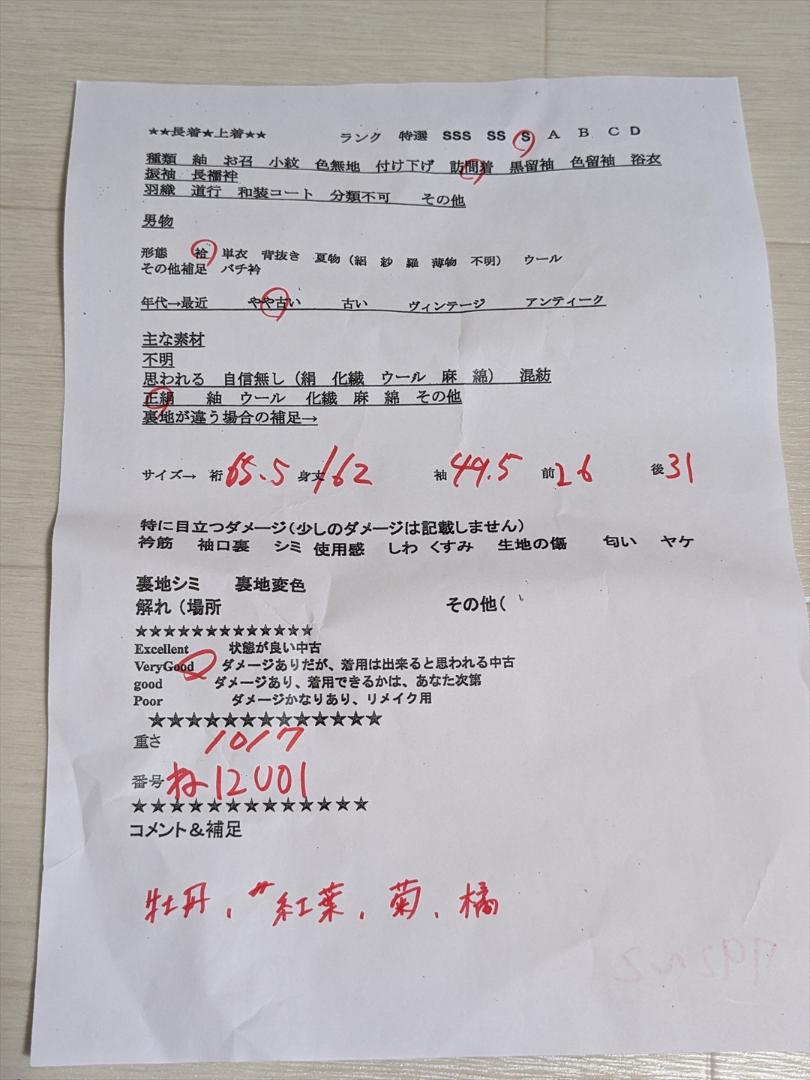 ★★長着★上着★★ ランク 特選 SSS SS S A B C D
種類 紬 お召 小紋 色無地 付け下げ 訪問着 黒留袖 色留袖 浴衣
振袖 長襦袢
羽織 道行 和装コート 分類不可 その他
男物
形態 袷 単衣 背抜き 夏物（絽 紗 羅 薄物 不明） ウール
その他補足 バチ衿
年代→最近 やや古い 古い ヴィンテージ アンティーク
主な素材
不明
思われる 自信無し（絹 化繊 ウール 麻 綿） 混紡
正絹 紬 ウール 化繊 麻 綿 その他
裏地が違う場合の補足→
サイズ→ 裄 65.5 身丈 162 袖 49.5 前 26 後 31
特に目立つダメージ（少しのダメージは記載しません）
衿筋 袖口裏 シミ 使用感 しわ くすみ 生地の傷 匂い ヤケ
裏地シミ 裏地変色
解れ（場所 その他（
★★★★★★★★★★★★★
Excellent 状態が良い中古
VeryGood ダメージありだが、着用は出来ると思われる中古
good ダメージあり、着用できるかは、あなた次第
Poor ダメージかなりあり、リメイク用
★★★★★★★★★★★★★
重さ 1017
番号 ね12U01
★★★★★★★★★★★★★
コメント＆補足
牡丹、紅葉、菊、橘